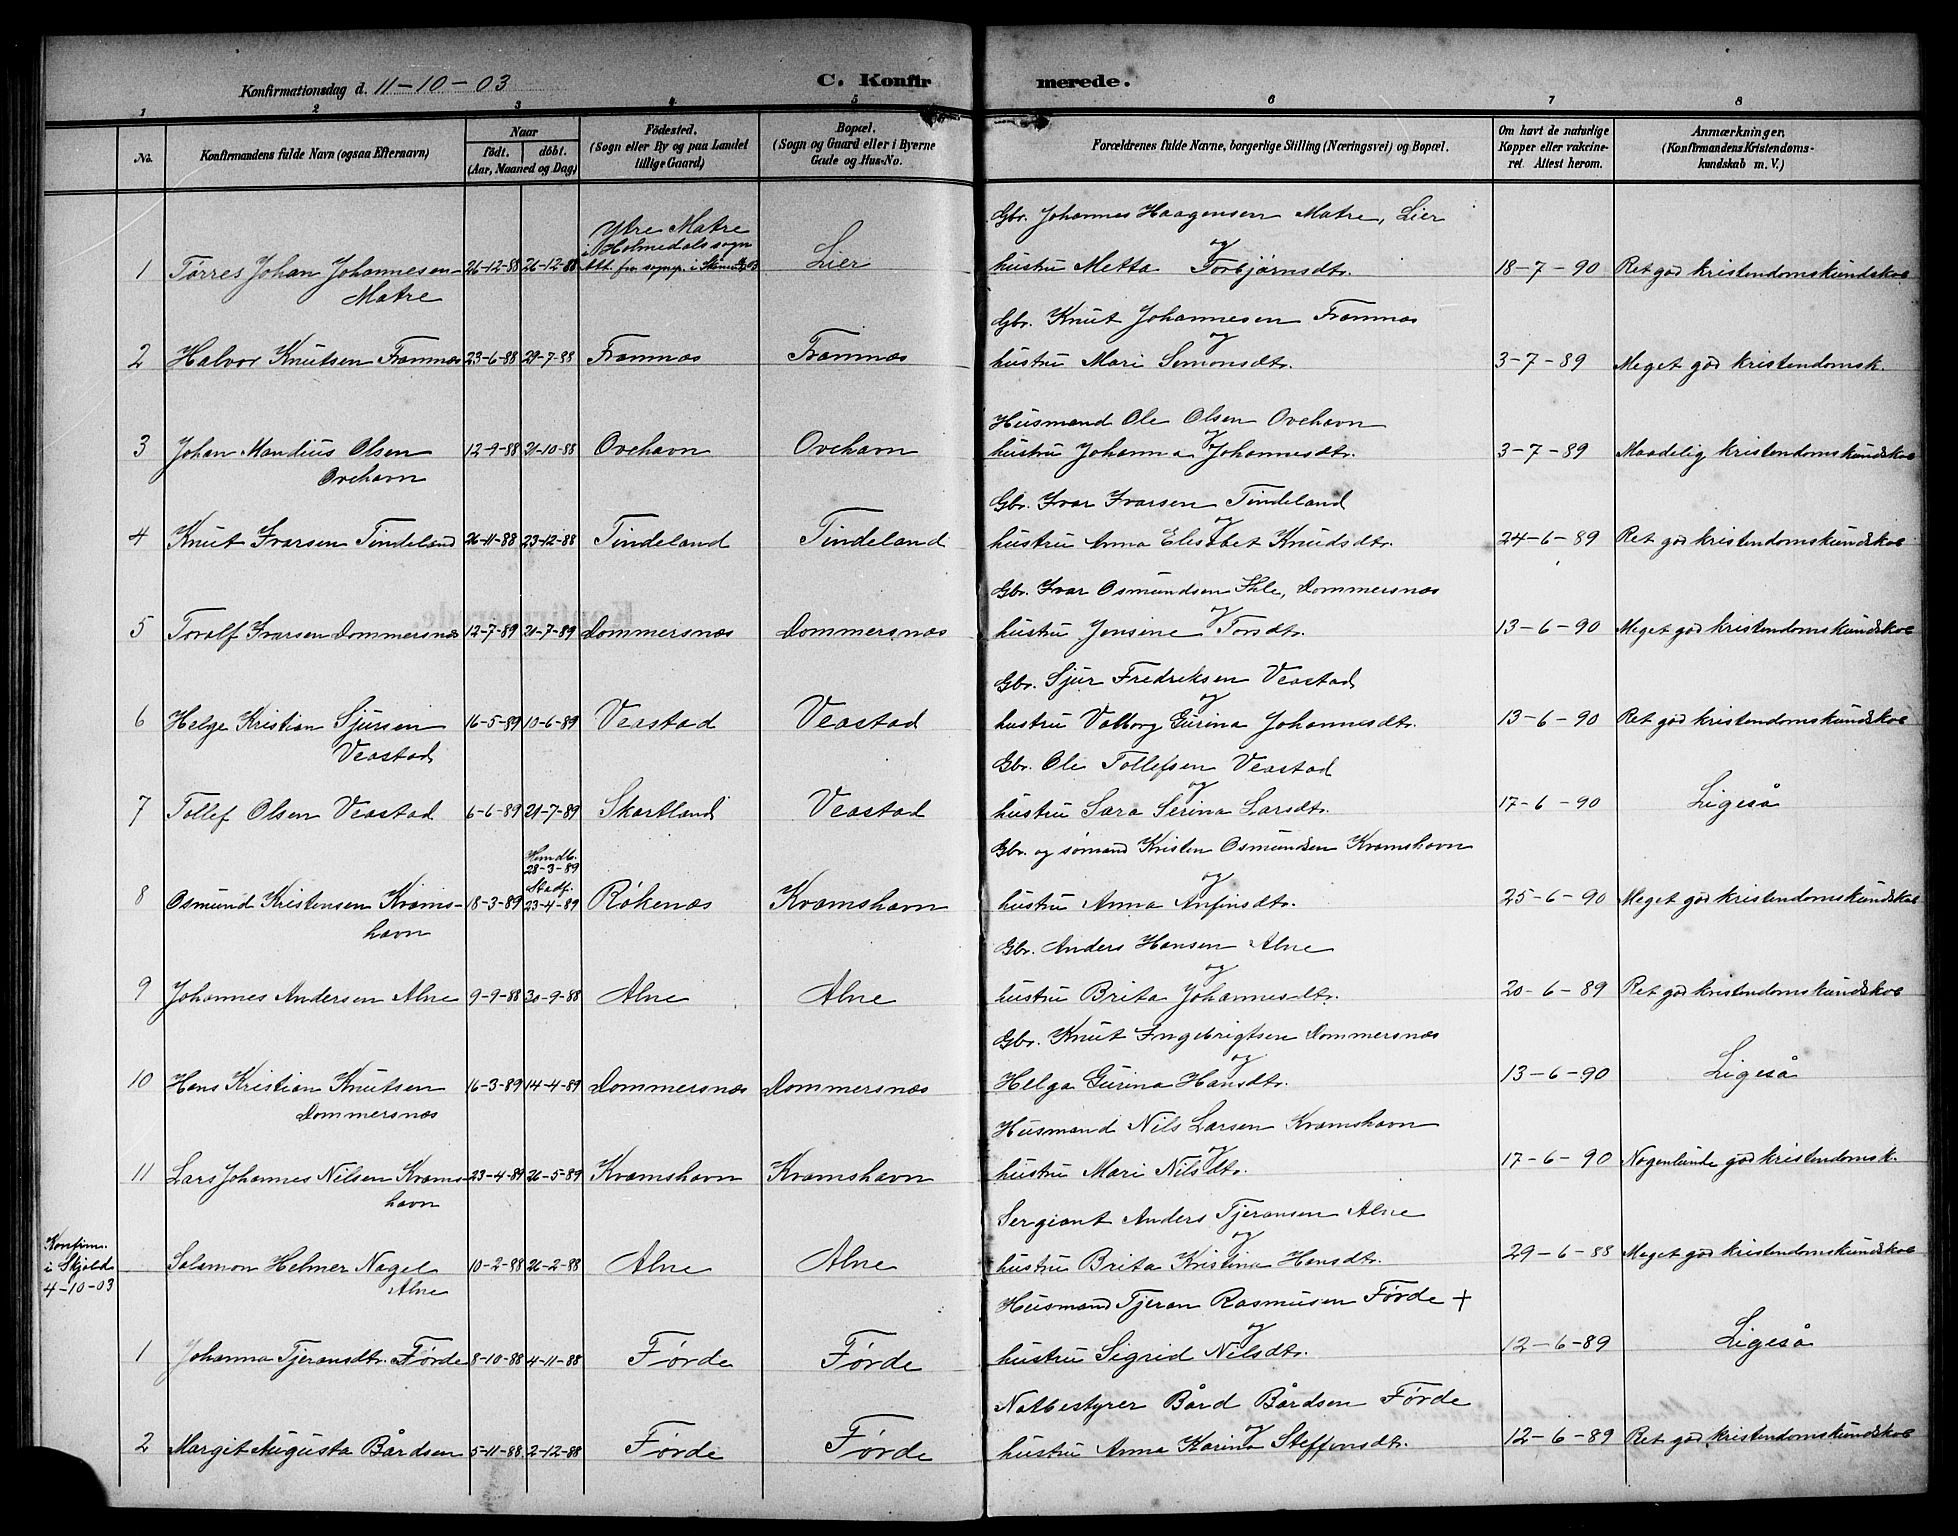 Konfirmationsdag d. 11-10-03 C. Konfirmerede.
1 2 3 4 5 6 7 8
No.
Konfirmandens fulde Navn (ogsaa Efternavn)
Naar
født. døbt.
(Aar, Maaned og Dag)
Födested.
(Sogn eller By og paa Landet
tillige Gaard)
Bopæl.
(Sogn og Gaard eller i Byerne
Gade og Hus-No.
Forældrenes fulde Navne, borgerlige Stilling (Næringsvei) og Bopæl.
Om havt de naturlige
Kopper eller vakcine-
ret. Attest herom.
Anmærkninger.
(Konfirmandens Kristendoms-
kundskab m. V.)
Ytre Matre
i Holmedals sogn
Gbr. Johannes Haagensen Matre, Lier
og
1 Tørres Johan Johannesen 26-12-88 26-12-88 Att. fra sognepr. i Lier hustru Metta Torbjørnsdtr. 18-7-90 Ret god kristendomskundskab
Matre
Gbr. Knut Johannesen Framnæs
og
2 Halvor Knutsen Framnæs 23-6-88 29-7-88 Framnæs Framnæs hustru Mari Simonsdtr. 3-7-89 Meget god kristendomsk.
Husmand Ole Olsen Ovehavn
og
3 Johan Mandius Olsen 12-9-88 21-10-88 Ovehavn Ovehavn hustru Johanna Johannesdtr. 3-7-89 Maadelig kristendomskundskab
Ovehavn
Gbr. Ivar Ivarsen Tindeland
og
4 Knut Ivarsen Tindeland 26-11-88 23-12-88 Tindeland Tindeland hustru Anna Elisabet Knudsdtr. 24-6-89 Ret god kristendomskundskab
Gbr. Ivar Osmundsen Ihle, Dommersnæs
og
5 Toralf Ivarsen Dommersnæs 12-7-89 21-7-89 Dommersnæs Dommersnæs hustru Jensine Torsdtr. 13-6-90 Meget god kristendomskundskab
Gbr. Sjur Fredriksen Veastad
og
6 Helge Kristian Sjursen 16-5-89 10-6-89 Veastad Veastad hustru Valborg Gurina Johannesdtr. 13-6-90 Ret god kristendomskundskab
Veastad
Gbr. Ole Tollefsen Veastad
og
7 Tollef Olsen Veastad 6-6-89 21-7-89 Skartland Veastad hustru Sara Serina Larsdtr. 17-6-90 Ligeså
Hjemdb.
28-3-89
Stadf.
Gbr. og sømand Kristen Osmundsen Kramshavn
og
8 Osmund Kristensen Krams- 18-3-89 23-4-89 Røkenæs Kramshavn hustru Anna Anfinsdtr. 25-6-90 Meget god kristendomskundskab
havn
Gbr. Anders Hansen Alne
og
9 Johannes Andersen Alne 9-9-88 30-9-88 Alne Alne hustru Brita Johannesdtr. 20-6-89 Ret god kristendomskundskab
Gbr. Knut Ingebrigtsen Dommersnæs
og
10 Hans Kristian Knutsen 16-3-89 14-4-89 Dommersnæs Dommersnæs Helga Gurina Hansdtr. 13-6-90 Ligeså
Dommersnæs
Husmand Nils Larsen Kramshavn
og
11 Lars Johannes Nilsen Krams- 23-4-89 26-5-89 Kramshavn Kramshavn hustru Mari Nilsdtr. 17-6-90 Nogenlunde god kristendomsk.
havn
Konfirm.
i Skjold
4-10-03
Sergiant Anders Tjeransen Alne
og
Salamon Helmer Nagel 10-2-88 26-2-88 Alne Alne hustru Brita Kristina Hansdtr. 29-6-88 Meget god kristendomskundskab
Alne
Husmand Tjeran Rasmusen Førde +
og
1 Johanna Tjeransdtr. Førde 8-10-88 4-11-88 Førde Førde hustru Sigrid Nilsdtr. 12-6-89 Ligeså
Notbestyrer Bård Bårdsen Førde
og
2 Margit Augusta Bårdsen 5-11-88 2-12-88 Førde Førde hustru Anna Karina Steffensdtr. 12-6-89 Ret god kristendomskundskab